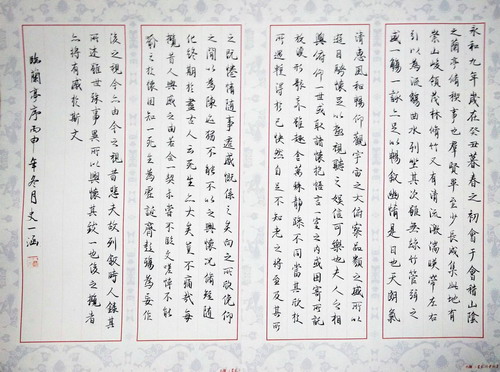 永和九年歲在癸丑暮春之初會于會稽山陰
之蘭亭脩稧事也羣賢畢至少長咸集此地有
崇山峻領茂林脩竹又有清流激湍暎帶左右
引以為流觴曲水列坐其次雖無絲竹管弦之
盛一觴一詠亦足以暢敘幽情是日也天朗氣
清惠風和暢仰觀宇宙之大俯察品類之盛所以
遊目騁懷足以極視聽之娛信可樂也夫人之相
與俯仰一世或取諸懷抱悟言一室之內或因寄所託
放浪形骸之外雖趣舍萬殊靜躁不同當其欣於
所遇蹔得於己快然自足不知老之將至及其所
之既惓情隨事遷感慨係之矣向之所欣俛仰
之間以為陳迹猶不能不以之興懷況脩短隨
化終期於盡古人云死生亦大矣豈不痛哉每
攬昔人興感之由若合一契未嘗不臨文嗟悼不能
喻之於懷固知一死生為虛誕齊彭殤為妄作
後之視今亦由今之視昔悲夫故列敘時人錄其
所述雖世殊事異所以興懷其致一也後之攬者
亦將有感於斯文
臨蘭亭序丙申年冬月史一涵